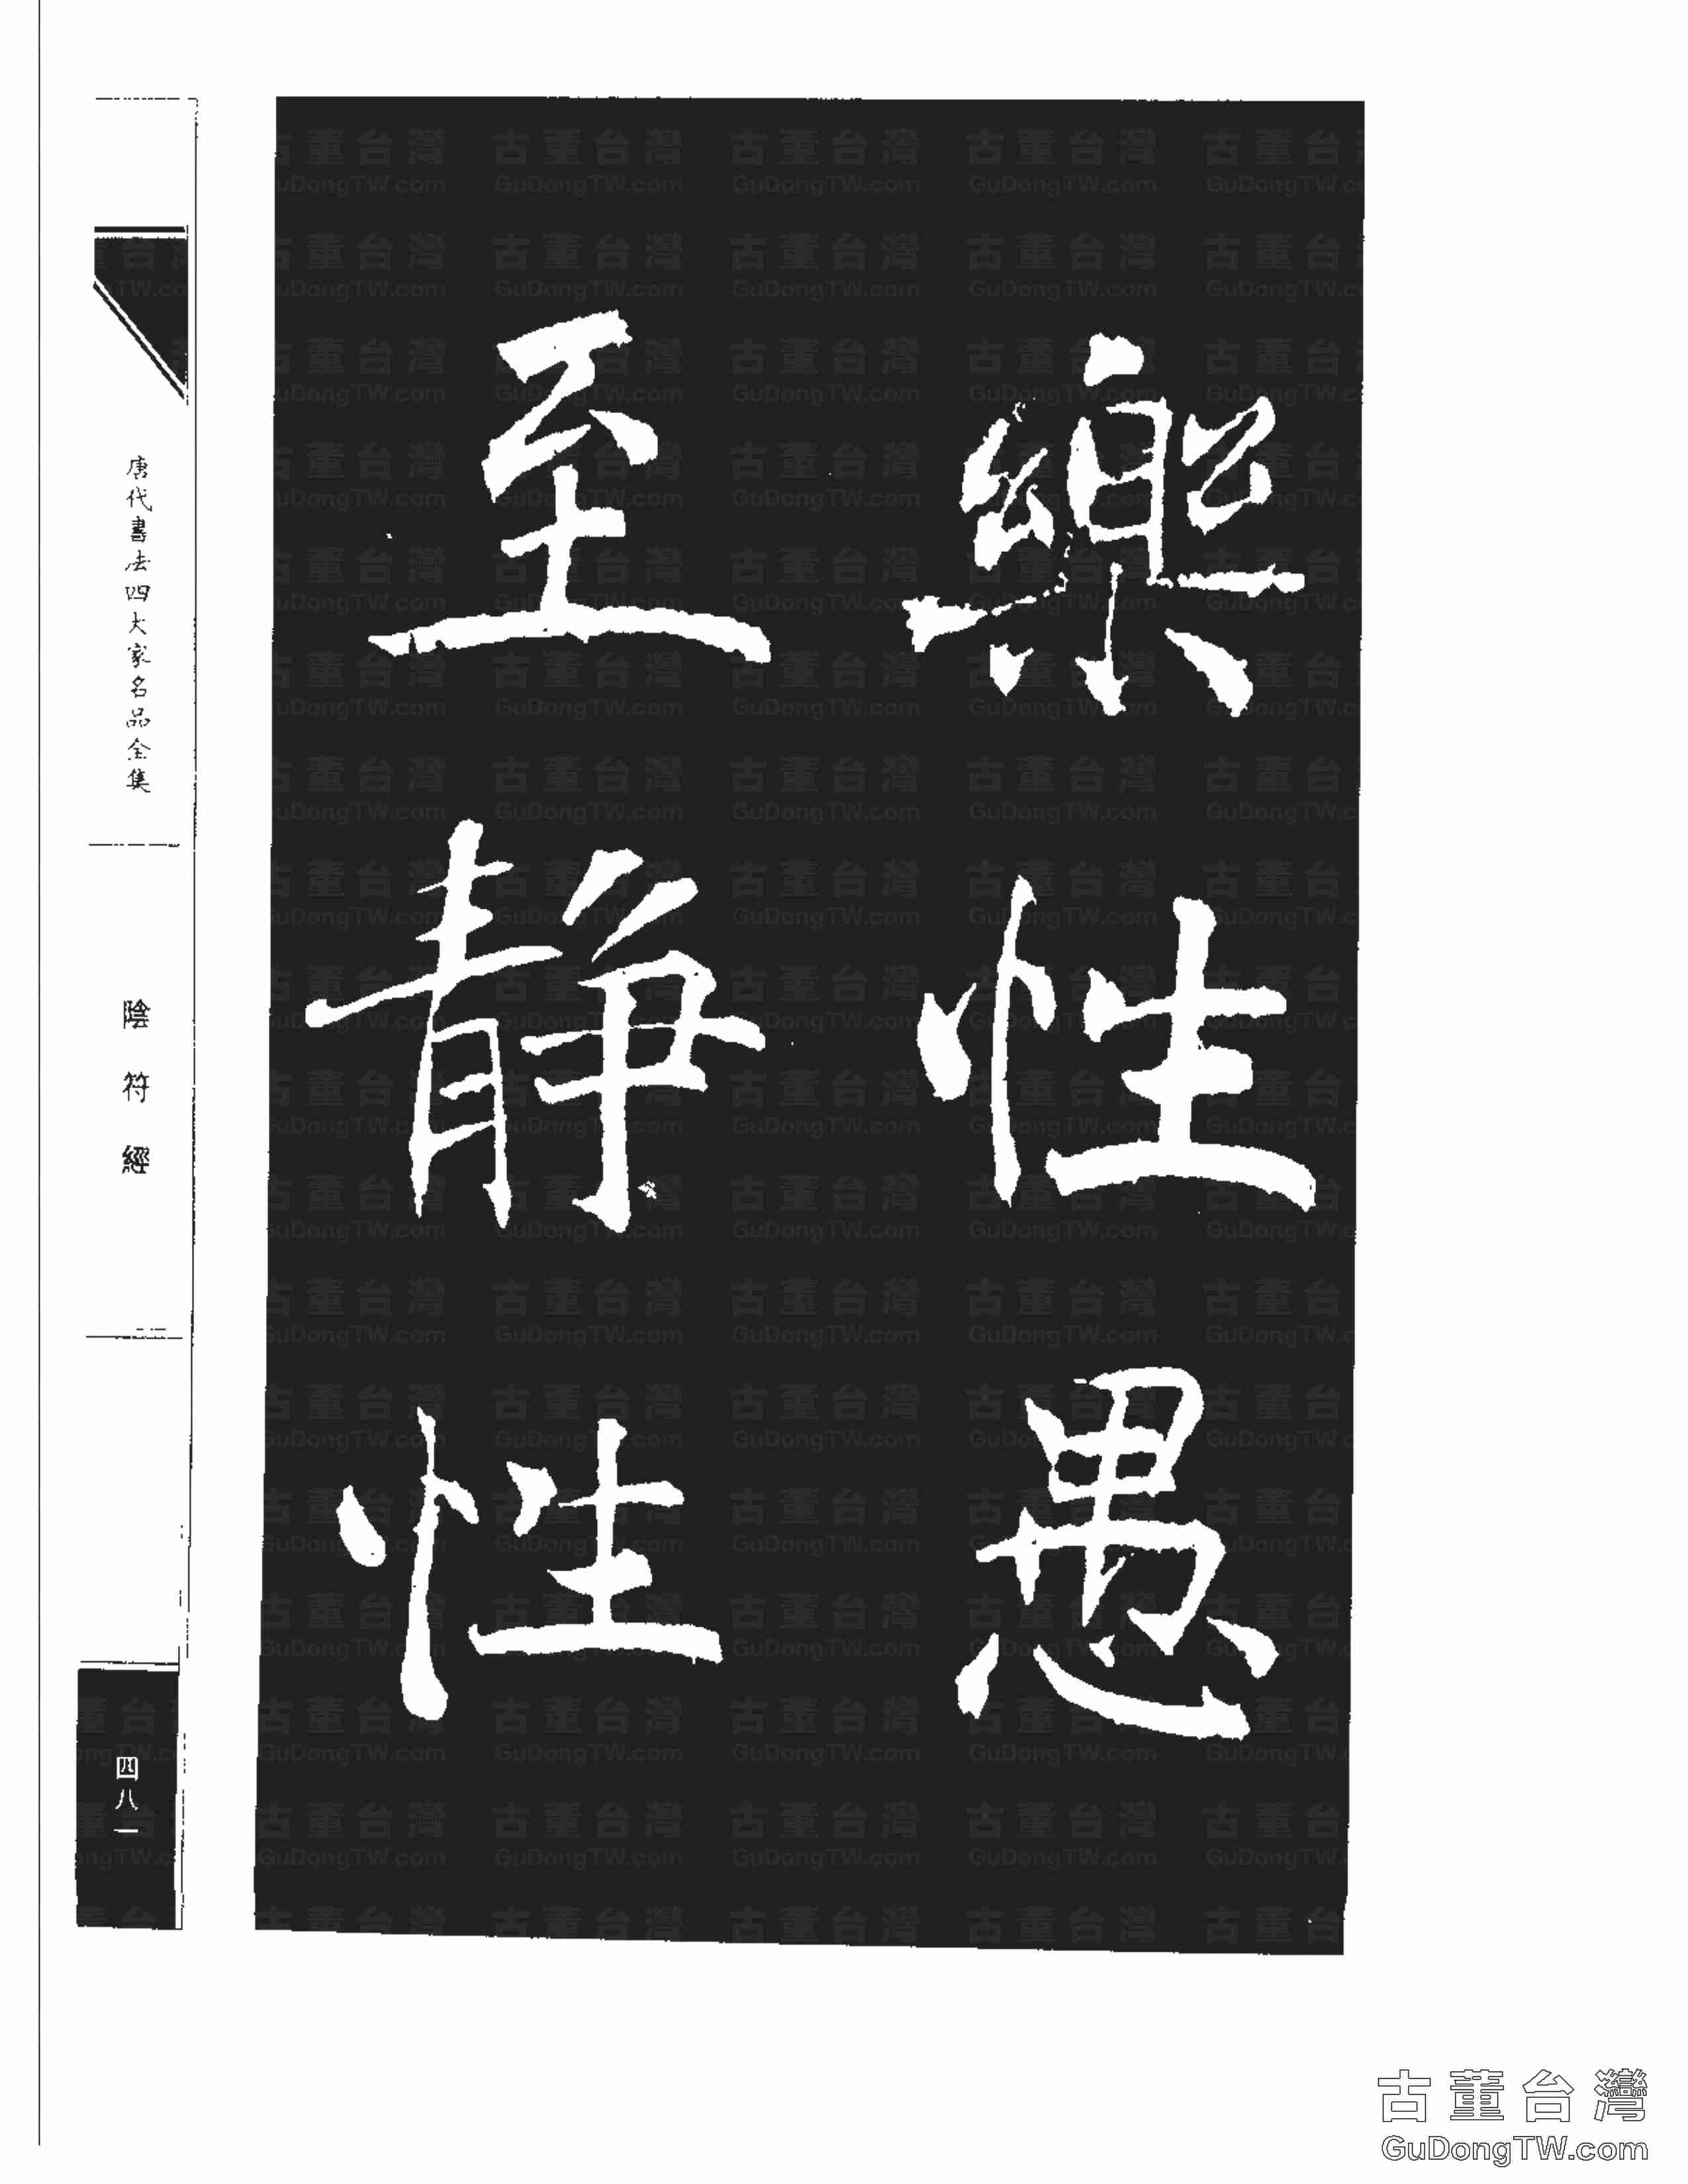 樂性愚
至靜性
唐代書法四大家名品全集
陰符經
四八一
古董台灣
GuDongTW.com